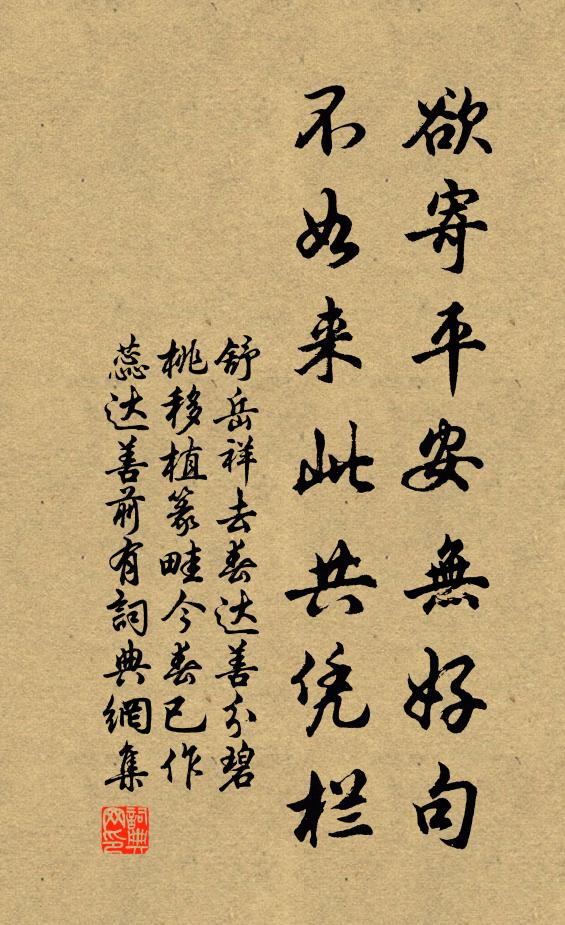 欲寄平安無好句
不如来此共凭栏
舒岳祥去春达善分碧
桃移植篆畦今春已作
蕊达善前有詞典網集
詞典網印